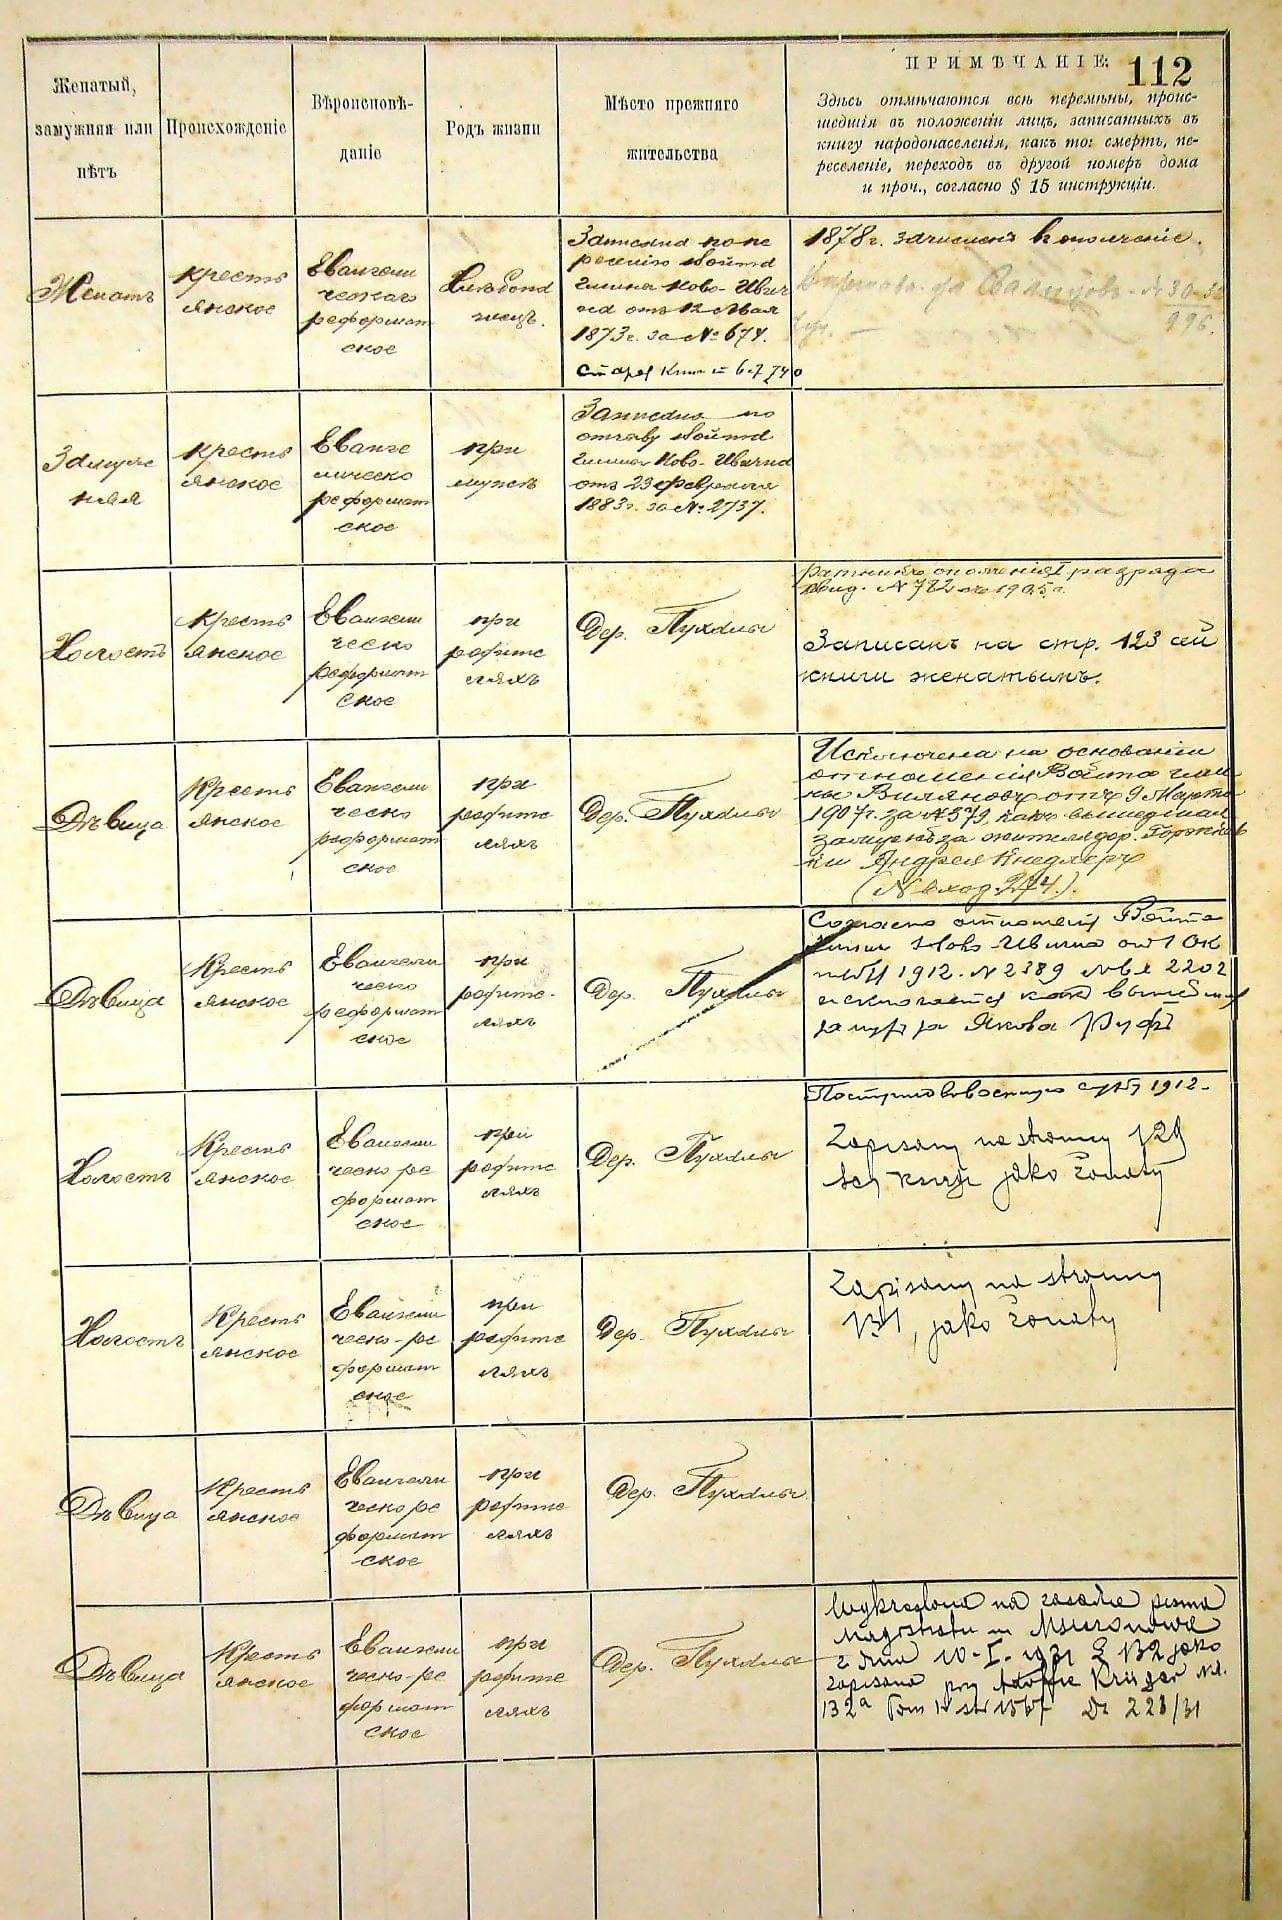 112
Женатый,
замужняя или
нѣтъ
Происхожденіе
Вѣроисповѣ-
даніе
Родъ жизни
Мѣсто прежняго
жительства
ПРИМѢЧАНІЕ.
Здѣсь отмѣчаются всѣ перемѣны, проис-
шедшія въ положеніи лицъ, записанныхъ въ
книгу народонаселенія, какъ то: смерть, пе-
реселеніе, переходъ въ другой номеръ дома
и проч., согласно § 15 инструкціи.
Женатъ
Кресть
янское
Евангели
ческаго
реформат
ское
Хлѣбопа
шецъ.
Гмина Ново-Ивич
на отъ 12 Мая
1873 г. за № 674.
1878 г. зачисленъ в ополченіе.
Замуж
няя
Кресть
янское
Еванге
лическо
реформат
ское
при
мужѣ
Записана по
отзыву Войта
гмины Ново-Ивична
отъ 23 Февраля
1883 г. за № 2737.
Холостъ
Кресть
янское
Евангели
ческо
реформат
ское
при
родите
ляхъ
Дер. Пухалы
Ратникъ ополченія I разряда
свид. № 782 1905 г.
Записанъ на стр. 123 сей
книги женатымъ.
Дѣвица
Кресть
янское
Евангели
ческо
реформат
ское
при
родите
ляхъ
Дер. Пухалы
Исключена на основаніи
отношенія Войта гми
ны отъ 9 Марта
1907 г. за № 579, какъ вышедшая
замужъ за жителя дер.
Андрея
(№ вход. 274.).
Дѣвица
Кресть
янское
Евангели
ческо
реформат
ское
при
родите-
ляхъ
Дер. Пухалы
Согласно отношенія Войта
гмины Ново-Ивична от 1 Ок
1912. № 2389
исключается как вышедшая
замуж за Якова
Холостъ
Кресть
янское
Евангели
ческо ре
формат
ское
при
родите
ляхъ
Дер. Пухалы
Поступилъ в военную службу 1912.
Zapisany na stronnicy 129
tej księgi jako żonaty
Холостъ
Кресть
янское
Евангели
ческо-ре
формат
ское
при
родите
ляхъ
Дер. Пухалы
Zapisany na stronnicy
131, jako żonaty
Дѣвица
Кресть
янское
Евангели
ческо ре
формат
ское
при
родите
ляхъ
Дер. Пухалы
Дѣвица
Кресть
янское
Евангели
ческо-ре
формат
ское
при
родите
ляхъ
Дер. Пухалы
Wykreślona na zasadzie pisma
Magistratu m.
z dnia 10-I-1931 L 132 jako
zapisana przy Adolfie Krüger
132a Tom